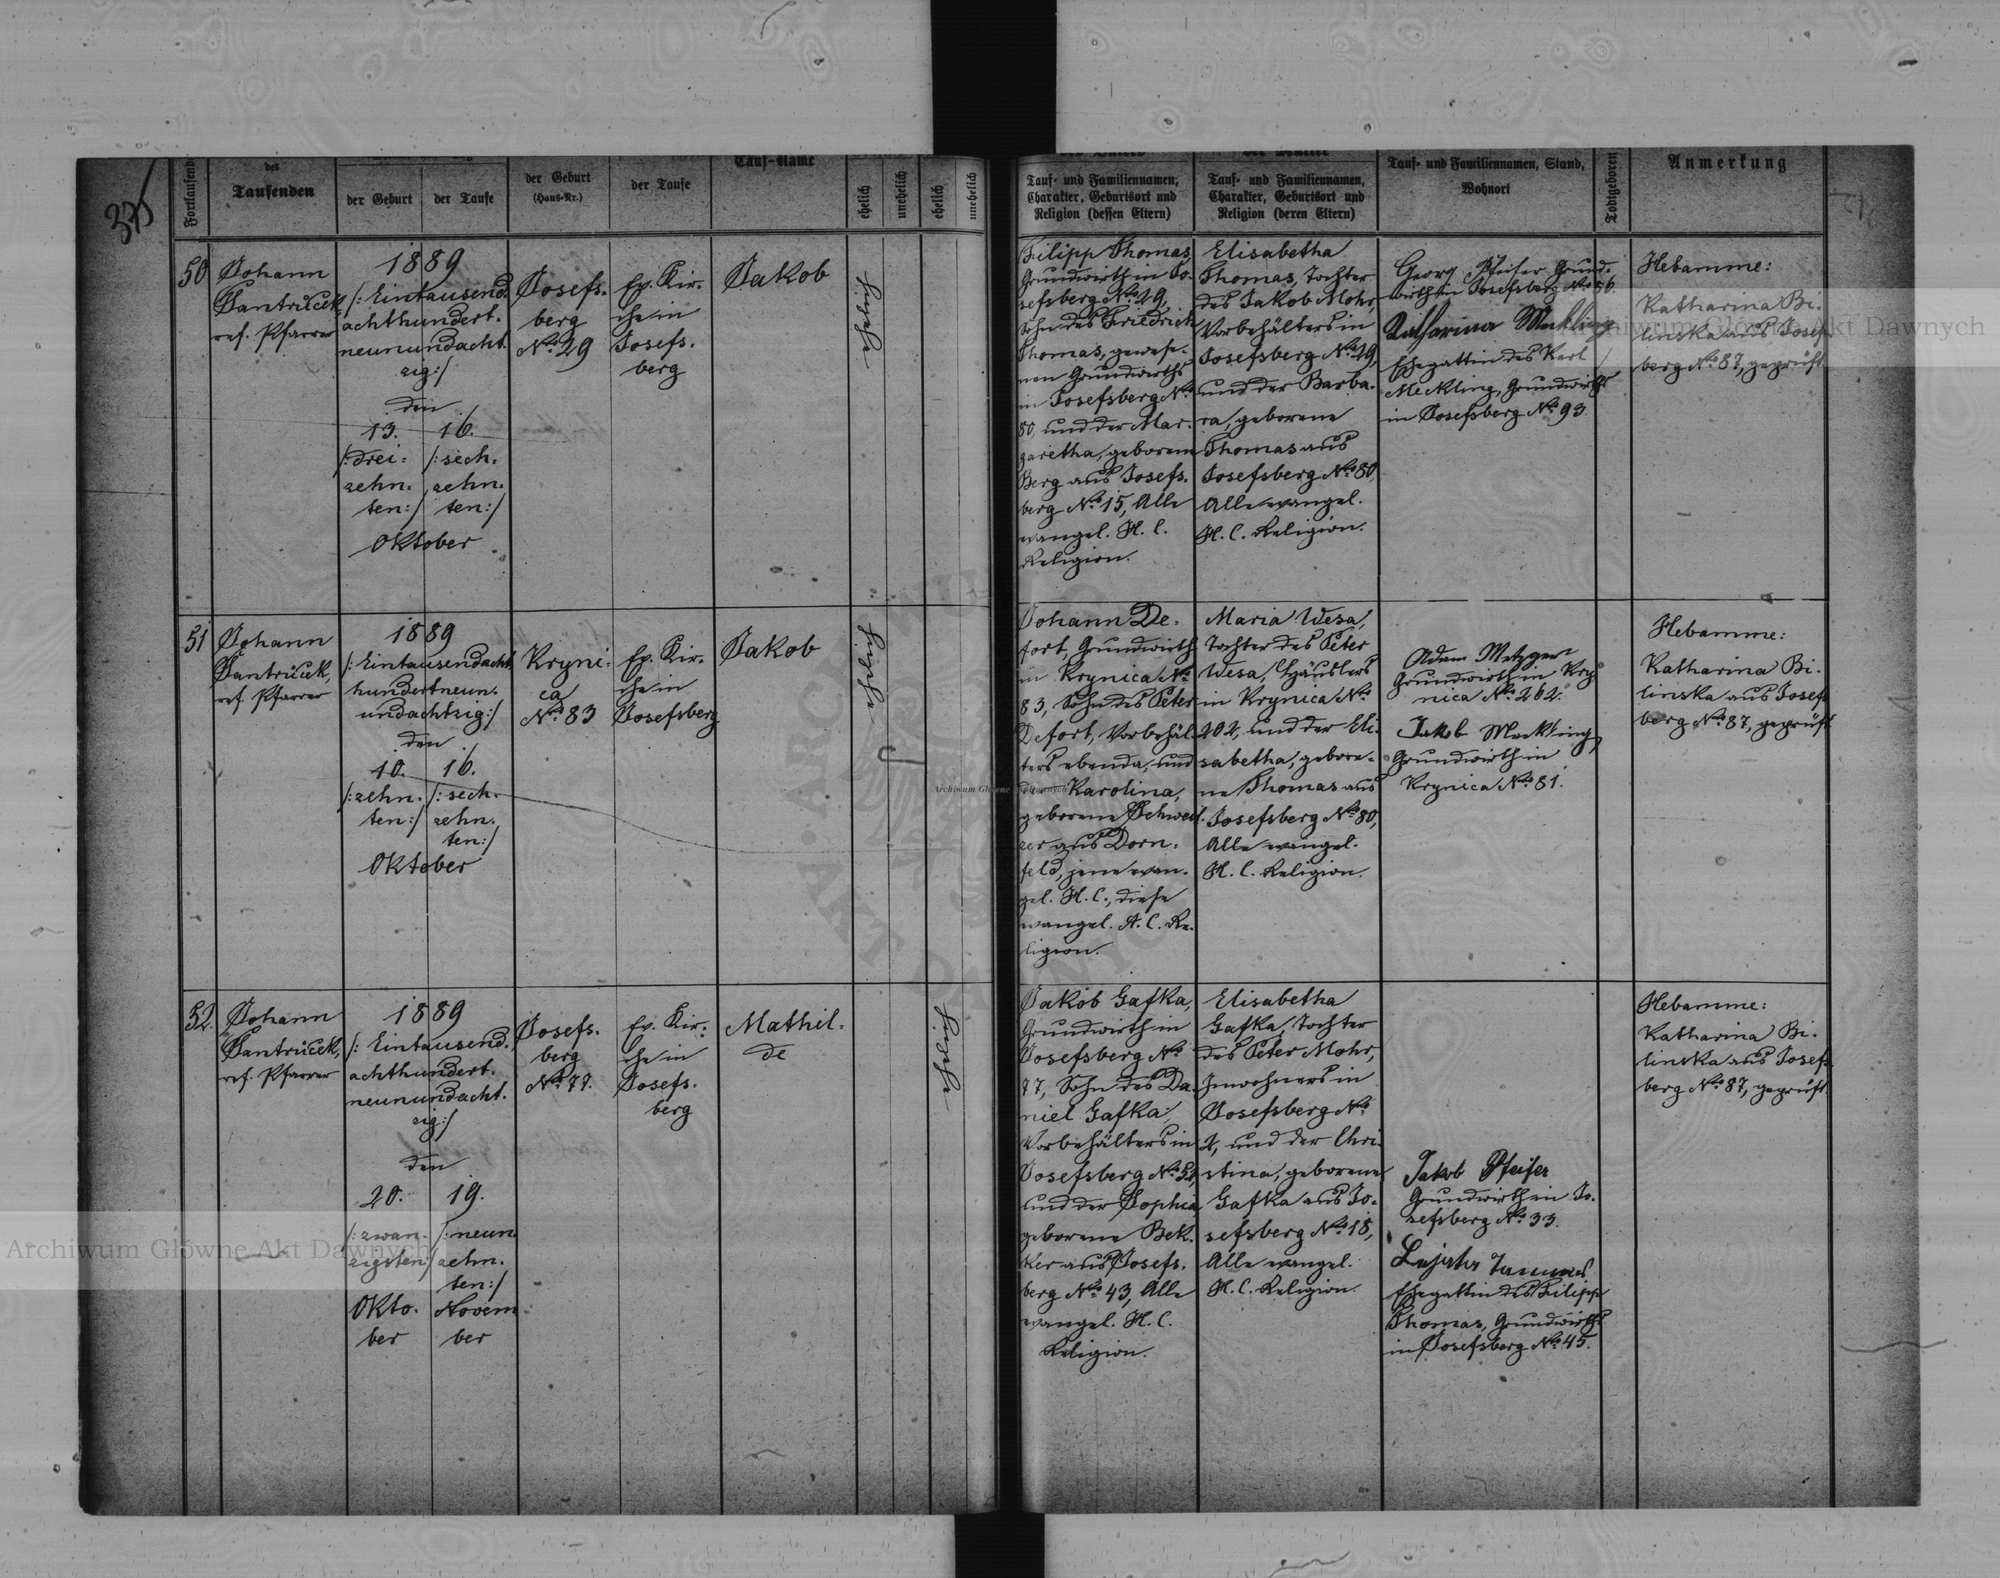 375
Fortlaufende
des
Taufenden
der Geburt
der Taufe
der Geburt
(Haus-Nr.)
der Taufe
Tauf-Name
ehelich
unehelich
ehelich
unehelich
Tauf- und Familiennamen,
Charakter, Geburtsort und
Religion (dessen Eltern)
Tauf- und Familiennamen,
Charakter, Geburtsort und
Religion (deren Eltern)
Tauf- und Familiennamen, Stand,
Wohnort
Todtgeboren
Anmerkung
50
Johann
Jantrůček,
ref. Pfarrer
1889
/: Eintausend.
achthundert.
neunundacht.
zig:/
den
13. 16.
/:drei= /:sech.
zehn. zehn.
ten:/ ten:/
Oktober
Josefs.
berg
No 29
Ev. Kir.
che in
Josefs.
berg
Jakob
Filipp Thomas,
Grundwirth in Jo.
sefsberg No 29,
Sohn des Friedrich
Thomas, gewese.
nen Grundwirths
in Josefsberg No
80, und der Mar.
garetha, geborene
Berg aus Josefs.
berg No 15, Alle
evangel. H. C.
Religion.
Elisabetha
Thomas, Tochter
des Jakob Mohr,
Vorbehälters in
Josefsberg No 29,
und der Barba.
ra, geborene
Thomas aus
Josefsberg No 80,
Alle evangel.
H. C. Religion.
Georg Pfeifer Grund.
wirth in Josefsberg No 56.
Katharina Meckling
Ehegattin des Karl
Meckling, Grundwirths
in Josefsberg No 93.
Hebamme:
Katharina Bi.
linska aus Josefs
berg No 87, geprüft
51
Johann
Jantrůček,
ref. Pfarrer
1889
/: Eintausendacht
hundertneun.
undachtzig:/
den
10. 16.
/:zehn. /:sech.
ten:/ zehn.
ten:/
Oktober
Kryni.
ca
No 83
Ev. Kir.
che in
Josefsberg
Jakob
Johann De.
fort, Grundwirth
in Krynica No
83, Sohn des Peter
Defort, Vorbehäl.
ters ebenda, und
der Karolina,
geborene Schweit.
zer aus Dorn.
feld, jene evan.
gel. H. C., diese
evangel. A. C. Re.
ligion.
Maria Wesa,
Tochter des Peter
Wesa, Häuslers
in Krynica No
202, und der Eli.
sabetha, gebore.
ne Thomas aus
Josefsberg No 80,
Alle evangel.
H. C. Religion.
Adam Metzger
Grundwirth in Kry
nica No 262.
Jakob Meckling,
Grundwirth in
Krynica No 81.
Hebamme:
Katharina Bi.
linska aus Josefs
berg No 87, geprüft
52.
Johann
Jantrůček,
ref. Pfarrer
1889
/: Eintausend.
achthundert.
neunundacht.
zig:/
den
20. 19.
/:zwan. /:neun
zigsten:/ zehn.
ten:/
Okto. Novem
ber ber
Josefs.
berg
No 77.
Ev. Kir.
che in
Josefs.
berg
Mathil.
de
Jakob Gafka,
Grundwirth in
Josefsberg No
77, Sohn des Da.
niel Gafka
Vorbehälters in
Josefsberg No 52,
und der Sophia
geborene Bek.
ker aus Josefs.
berg No 43, Alle
evangel. H. C.
Religion.
Elisabetha
Gafka, Tochter
des Peter Mohr,
Inwohners in
Josefsberg No
2, und der Chri.
stina, geborene
Gafka aus Jo.
sefsberg No 18,
Alle evangel.
H. C. Religion.
Jakob Pfeifer
Grundwirth in Jo.
sefsberg No 33.
Ehegattin des Filipp
Thomas, Grundwirths
in Josefsberg No 45.
Hebamme:
Katharina Bi.
linska aus Josefs
berg No 87, geprüft
Archiwum Główne Akt Dawnych
Archiwum Główne Akt Dawnych
Archiwum Główne Akt Dawnych